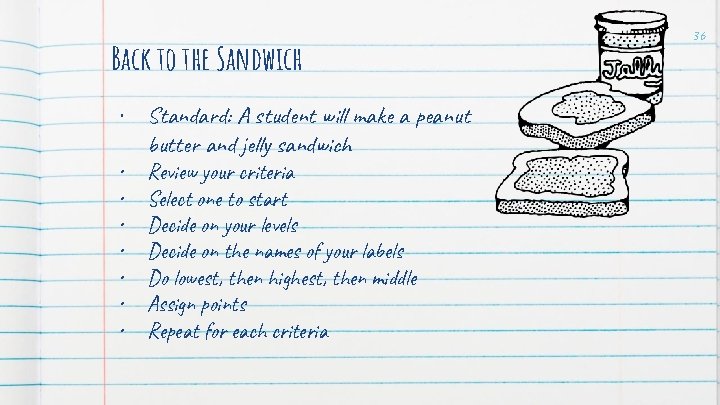 36
Back to the Sandwich
• Standard: A student will make a peanut
butter and jelly sandwich
• Review your criteria
• Select one to start
• Decide on your levels
• Decide on the names of your labels
• Do lowest, then highest, then middle
• Assign points
• Repeat for each criteria
Jelly